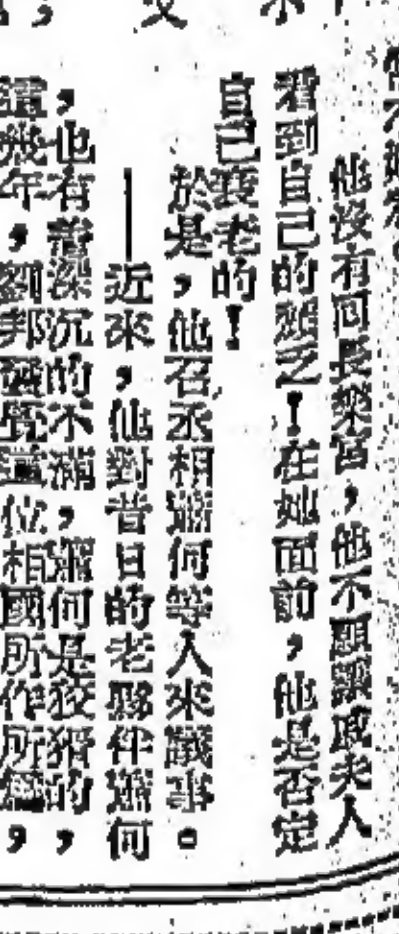 他沒有回長樂宮，他不願讓戚夫人
看到自己的頹乏！在她面前，他是否定
自己衰老的！
於是，他召丞相蕭何等人來議事。
——近來，他對昔日的老夥伴蕭何
，也有着深沉的不滿，蕭何是狡猾的，
這幾年，劉邦發覺這位相國所作所爲，